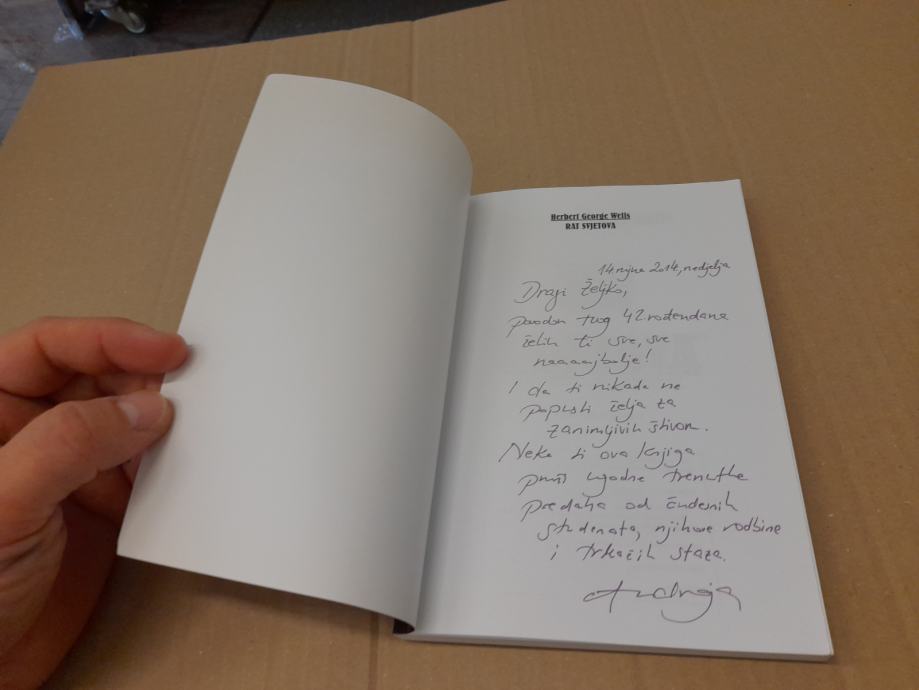 Herbert George Wells
RAT SVJETOVA
14. rujna 2014, nedjelja
Dragi Željko,
povodom tvog 42. rođendana
želim ti sve, sve
naaaajbolje!
I da ti nikada ne
popusti želja za
zanimljivih štivom.
Neka ti ova knjiga
pruži ugodne trenutke
predaha od čudesnih
studenata, njihove rodbine
i trkaćih staza.
Andrija